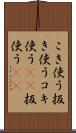 こき使う扱
き使うコキ
使う扱
使う